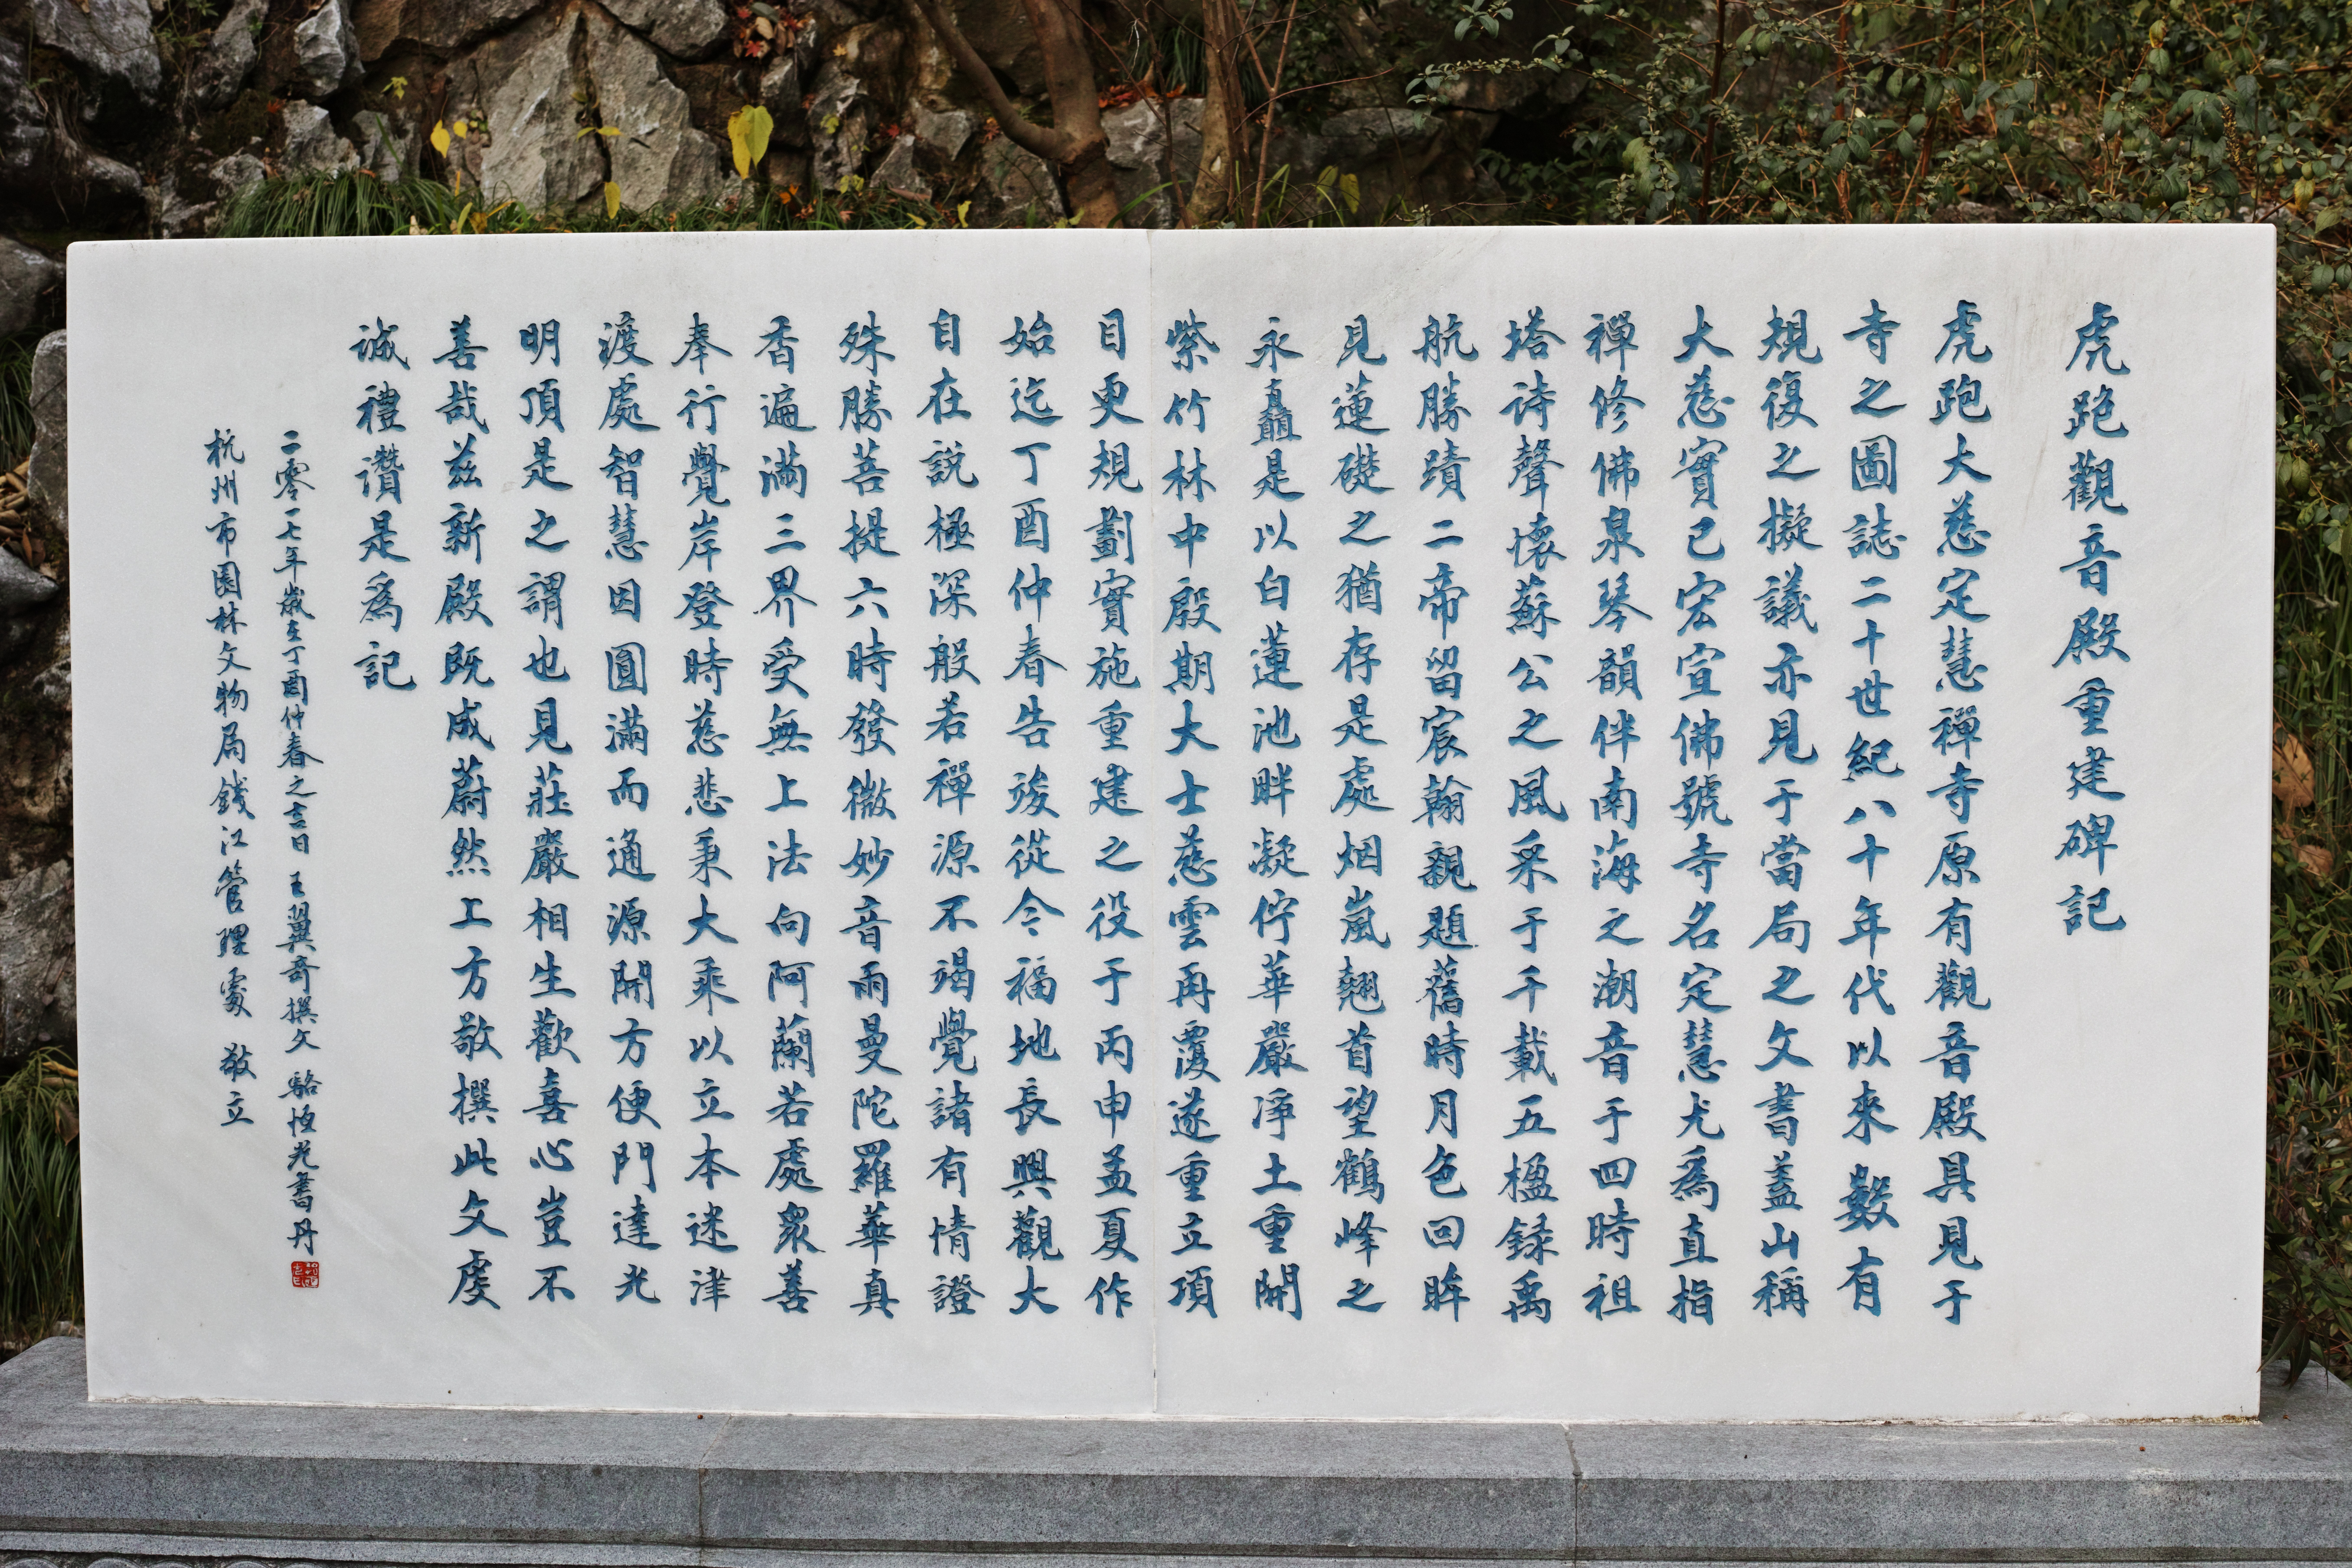 虎跑觀音殿重建碑記
虎跑大慈定慧禪寺原有觀音殿具見于
寺之圖誌二十世紀八十年代以來數有
規復之擬議亦見于當局之文書蓋山稱
大慈實已宏宣佛號寺名定慧尤爲直指
禪修佛泉琴韻伴南海之潮音于四時祖
塔詩聲懷蘇公之風采于千載五楹録禹
航勝蹟二帝留宸翰親題舊時月色回眸
見蓮礎之猶存是處烟嵐翹首望鶴峰之
永矗是以白蓮池畔凝佇華嚴淨土重開
紫竹林中殷期大士慈雲再覆遂重立項
目更規劃實施重建之役于丙申孟夏作
始迄丁酉仲春告竣從今福地長興觀大
自在說極深般若禪源不竭覺諸有情證
殊勝菩提六時發微妙音雨曼陀羅華真
香遍滿三界受無上法向阿蘭若處衆善
奉行覺岸登時慈悲秉大乘以立本迷津
渡處智慧因圓滿而通源開方便門達光
明頂是之謂也見莊嚴相生歡喜心豈不
善哉兹新殿既成蔚然上方敬撰此文虔
誠禮讚是爲記
二零一七年歲在丁酉仲春之吉日 王翼奇撰文 駱恒光書丹
杭州市園林文物局錢江管理處 敬立